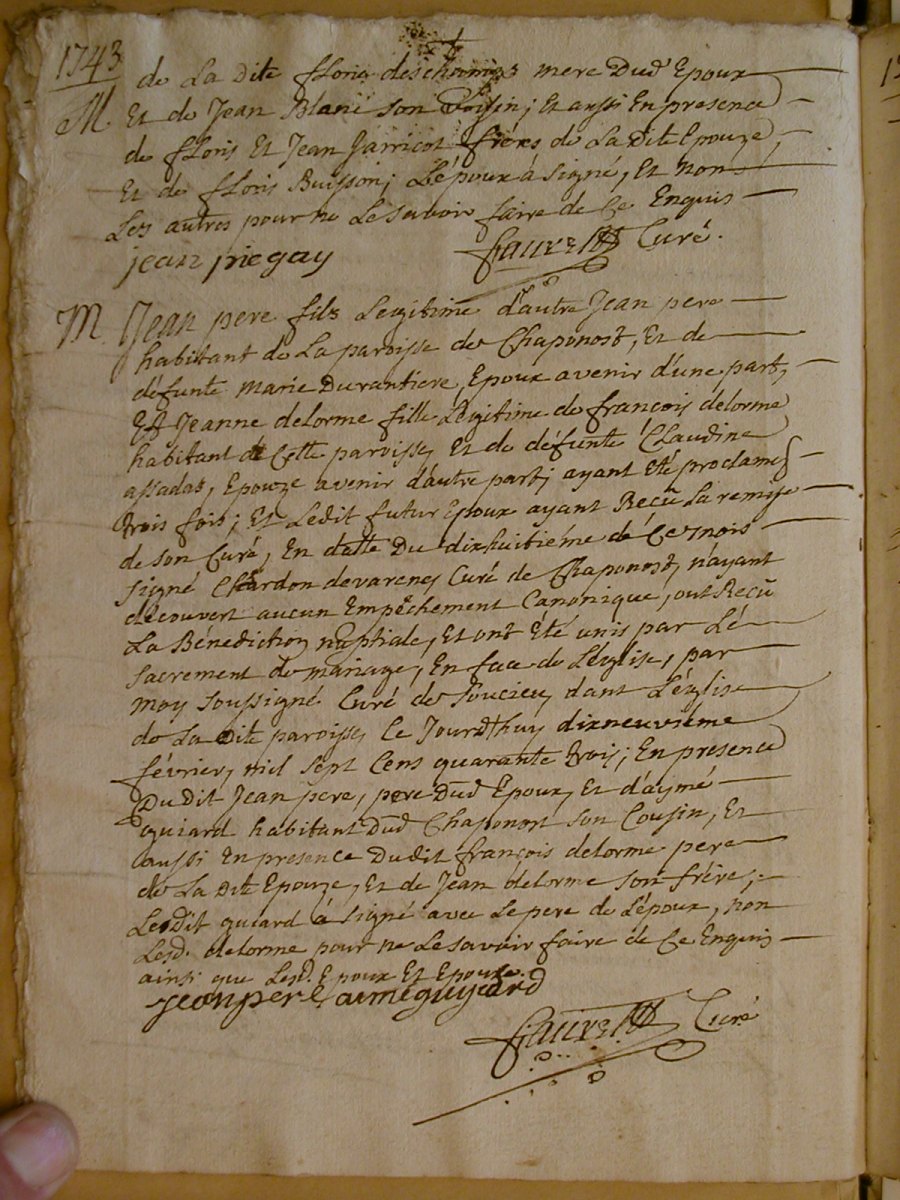 1743
de La dite fLorie deschamps mere Dud Epoux
M Et de Jean Blanc son Cousin; Et aussi En presence
de fLoris Et Jean Garricot frères de La Dite Epouze,
Et de fLoris Buisson; Lépoux à Signé, Et non
Les autres pour ne Le savoir faire de Ce Enquis
jean piegay Curé.
M. Jean pere fils Legitime d'autre Jean pere
habitant de La paroisse de Chaponost, Et de
défunte marie Durantiere, Epoux avenir d'une part,
Et Jeanne delorme fille Légitime de françois delorme
habitant de Cette paroisse, Et de défunte Claudine
assadas, Epouze avenir d'autre part; ayant été proclamés
trois fois; Et Ledit futur Epoux ayant Reçu La remise
de son Curé, En datte Du dixhuitiéme de Ce mois
signé Chardon devarenes Curé de Chaponost, n'ayant
découvert aucun Empêchement Canonique, ont Reçu
La Bénédiction nuptiale, Et ont Eté unis par Lé
sacrement de mariage, En face de L'église, par
moy soussigné Curé de Soucieu, dans L'église
de La Dite paroisse, Ce Jourdhuy dixneuviéme
février, mil sept Cens quarante trois; En presence
Du dit Jean pere, pere Dud Epoux, Et d'aymé
guiard habitant Dud Chaponost son Cousin, Et
aussi En presence Dudit françois delorme pere
de La Dite Epouze, Et de Jean delorme son frére;
Ledit guiard à signé avec Le pere de L'époux, non
Lesd. delorme pour ne Le savoir faire de Ce Enquis
ainsi que Lesd. Epoux Et Epouze.
jeanpere aimé guyard
Curé